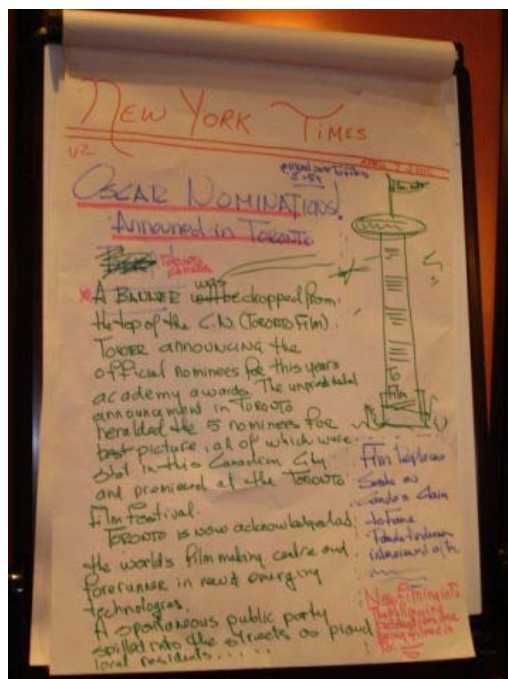 NEW YORK TIMES
V2
OSCAR NOMINATIONS
Announed in TORONTO
TORONTO
CANADA
A BANNER was be dropped from
the top of the C.N. (TORONTO Film)
TOWER announcing the
official nominees for this years
academy awards. The
announcement in TORONTO
heralded the 5 nominees for
best picture, all of which were
shot in this Canadian City
and premiered at the TORONTO
Film Festival.
TORONTO is now acknowledged
the world's film making centre and
forerunner in new & emerging
technologies.
A spontaneous public party
spilled into the streets as proud
local residents.....
To
Film
Film replaces
as
Canada's Claim
to Fame
Now Filming in TO
The following
productions are
being filmed in
TO